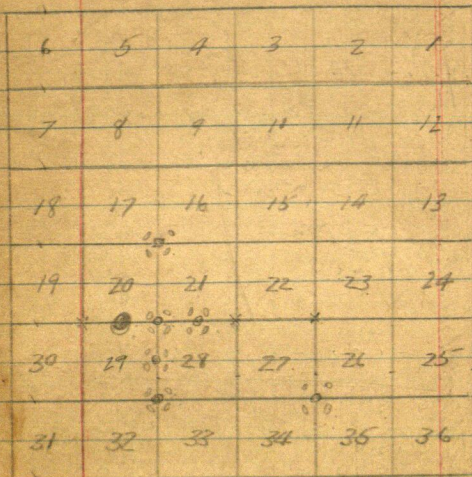 6 5 4 3 2 1
7 8 9 10 11 12
18 17 16 15 14 13
19 20 21 22 23 24
30 29 28 27 26 25
31 32 33 34 35 36